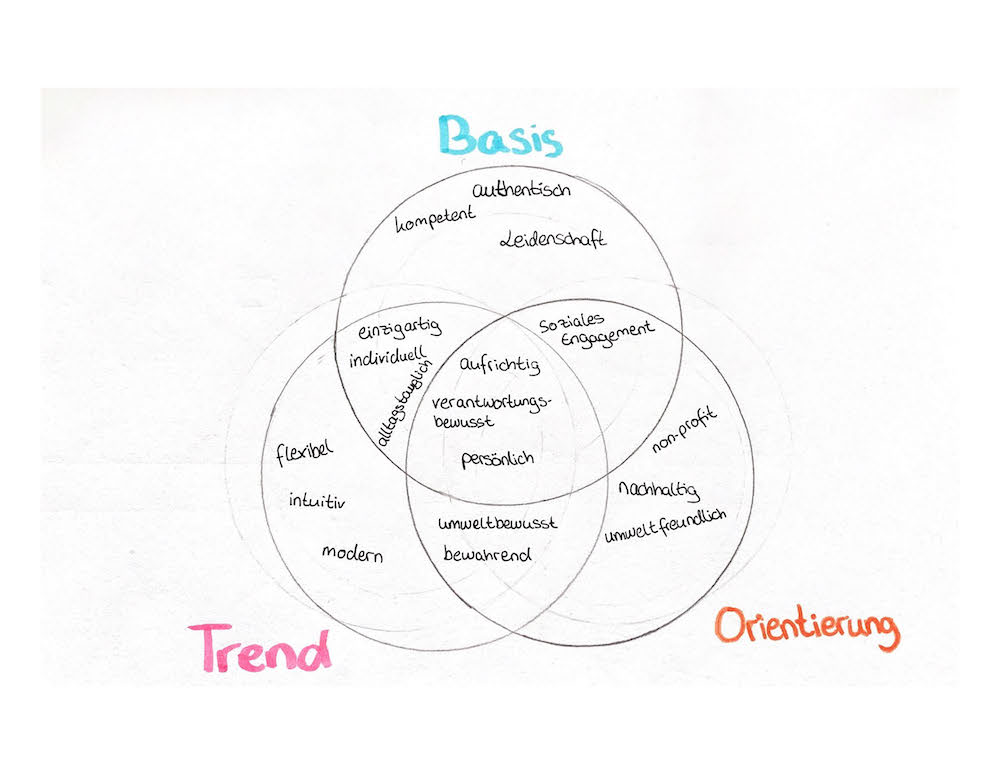 Basis
authentisch
kompetent
Leidenschaft
einzigartig
individuell
alltagstauglich
soziales
Engagement
aufrichtig
verantwortungs-
bewusst
persönlich
flexibel
intuitiv
modern
non-profit
nachhaltig
umweltfreundlich
umweltbewusst
bewahrend
Trend
Orientierung